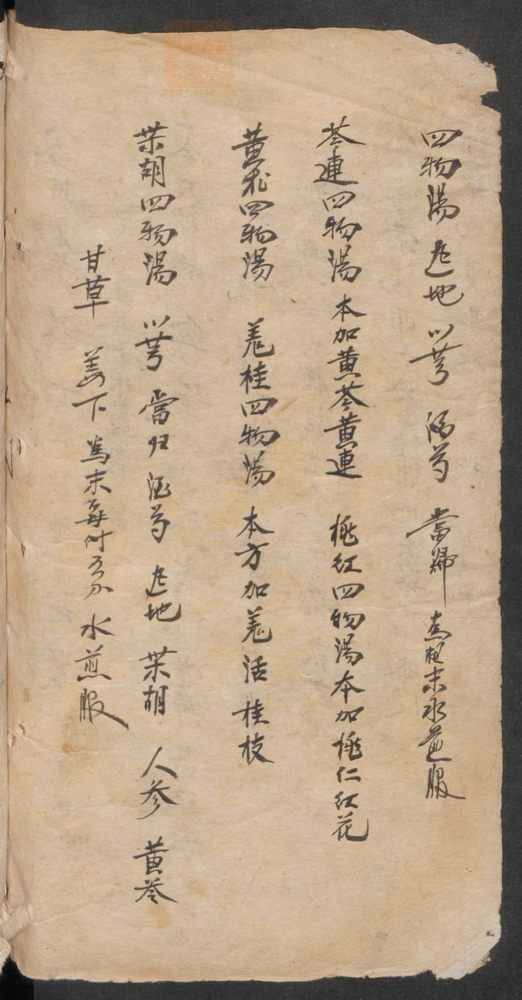 四物湯 生地 川芎 酒芍 當歸 為粗末水煎服
芩連四物湯 本加黄芩黄連 桃紅四物湯 本加桃仁紅花
黄芪四物湯 羌桂四物湯 本方加羌活桂枝
柴胡四物湯 川芎 當归 酒芍 生地 柴胡 人参 黄芩
甘草 姜下 為末每付五分 水煎服